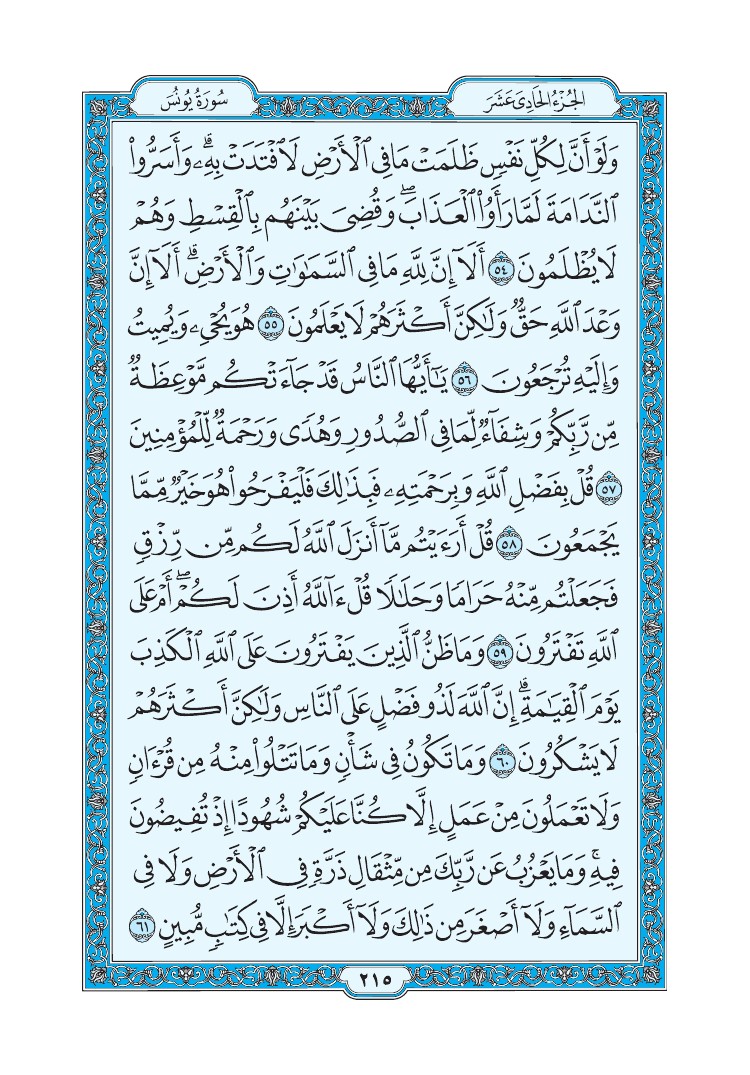 الجُزْءُ الحَادِي عَشَر
سُورَةُ يُونُسَ
وَلَوْ أَنَّ لِكُلِّ نَفْسٖ ظَلَمَتْ مَا فِي ٱلْأَرْضِ لَٱفْتَدَتْ بِهِۦۗ وَأَسَرُّوا۟
ٱلنَّدَامَةَ لَمَّا رَأَوُا۟ ٱلْعَذَابَۖ وَقُضِيَ بَيْنَهُم بِٱلْقِسْطِ وَهُمْ
لَا يُظْلَمُونَ ٥٤ أَلَآ إِنَّ لِلَّهِ مَا فِي ٱلسَّمَٰوَٰتِ وَٱلْأَرْضِۗ أَلَآ إِنَّ
وَعْدَ ٱللَّهِ حَقّٞ وَلَٰكِنَّ أَكْثَرَهُمْ لَا يَعْلَمُونَ ٥٥ هُوَ يُحْيِۦ وَيُمِيتُ
وَإِلَيْهِ تُرْجَعُونَ ٥٦ يَٰٓأَيُّهَا ٱلنَّاسُ قَدْ جَآءَتْكُم مَّوْعِظَةٞ
مِّن رَّبِّكُمْ وَشِفَآءٞ لِّمَا فِي ٱلصُّدُورِ وَهُدٗى وَرَحْمَةٞ لِّلْمُؤْمِنِينَ
٥٧ قُلْ بِفَضْلِ ٱللَّهِ وَبِرَحْمَتِهِۦ فَبِذَٰلِكَ فَلْيَفْرَحُوا۟ هُوَ خَيْرٞ مِّمَّا
يَجْمَعُونَ ٥٨ قُلْ أَرَءَيْتُم مَّآ أَنزَلَ ٱللَّهُ لَكُم مِّن رِّزْقٖ
فَجَعَلْتُم مِّنْهُ حَرَامٗا وَحَلَٰلٗا قُلْ ءَآللَّهُ أَذِنَ لَكُمْۖ أَمْ عَلَى
ٱللَّهِ تَفْتَرُونَ ٥٩ وَمَا ظَنُّ ٱلَّذِينَ يَفْتَرُونَ عَلَى ٱللَّهِ ٱلْكَذِبَ
يَوْمَ ٱلْقِيَٰمَةِۗ إِنَّ ٱللَّهَ لَذُو فَضْلٍ عَلَى ٱلنَّاسِ وَلَٰكِنَّ أَكْثَرَهُمْ
لَا يَشْكُرُونَ ٦٠ وَمَا تَكُونُ فِي شَأْنٖ وَمَا تَتْلُوا۟ مِنْهُ مِن قُرْءَانٖ
وَلَا تَعْمَلُونَ مِنْ عَمَلٍ إِلَّا كُنَّا عَلَيْكُمْ شُهُودًا إِذْ تُفِيضُونَ
فِيهِۚ وَمَا يَعْزُبُ عَن رَّبِّكَ مِن مِّثْقَالِ ذَرَّةٖ فِي ٱلْأَرْضِ وَلَا فِي
ٱلسَّمَآءِ وَلَآ أَصْغَرَ مِن ذَٰلِكَ وَلَآ أَكْبَرَ إِلَّا فِي كِتَٰبٖ مُّبِينٍ ٦١
٢١٥